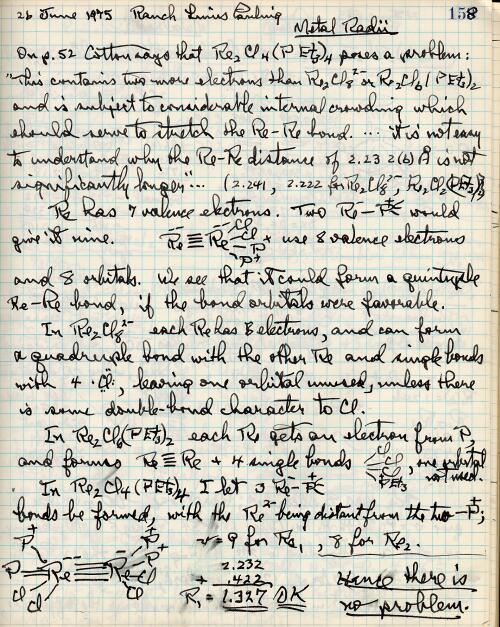 26 June 1975 Ranch Linus Pauling 158
Metal Radii
On p. 52 Cotton says that Re2Cl4(PEt3)4 poses a problem:
"This contains two more electrons than Re2Cl8²⁻ or Re2Cl6(PEt3)2
and is subject to considerable internal crowding which
should serve to stretch the Re-Re bond. ... it is not easy
to understand why the Re-Re distance of 2.232(6) Å is not
significantly longer"... (2.241, 2.222 for Re2Cl8²⁻, Re2Cl6(PEt3)2)
Re has 7 valence electrons. Two Re⁻-P⁺ would
give it nine. Re≡Re Cl Cl P⁺ P⁺ use 8 valence electrons
and 8 orbitals. We see that it could form a quintuple
Re-Re bond, if the bond orbitals were favorable.
In Re2Cl8²⁻ each Re has 8 electrons, and can form
a quadruple bond with the other Re and single bonds
with 4 ·Cl:, leaving one orbital unused, unless there
is some double-bond character to Cl.
In Re2Cl6(PEt3)2 each Re gets an electron from P,
and forms Re≣Re + 4 single bonds Cl Cl Cl PEt3, one orbital
not used.
In Re2Cl4(PEt3)4 I let 3 Re⁻-P⁺
bonds be formed, with the Re²⁻ being distant from the two -P⁺;
P⁺ P Re⁻⁻ Cl Cl Re⁻ P⁺ P⁺ Cl Cl
v = 9 for Re1, 8 for Re2.
2.232
+ .422
R1 = 1.327 OK
Hence there is
no problem.